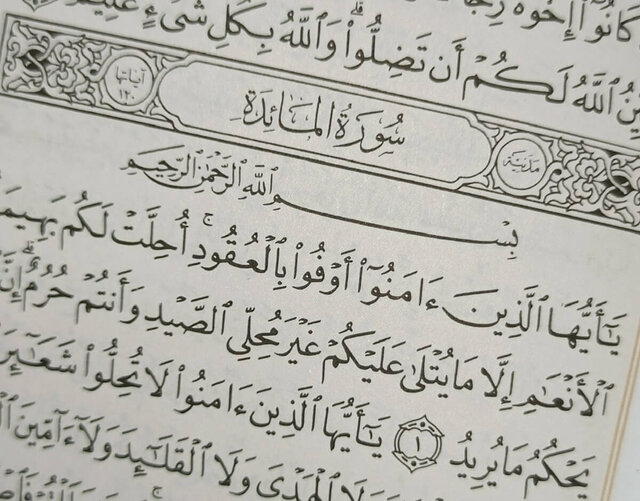 كَانُوٓا۟ إِخْوَةً
ٱللَّهُ لَكُمْ أَن تَضِلُّوا۟ ۗ وَٱللَّهُ بِكُلِّ شَىْءٍ عَلِيمٌ
مدنية سُورَةُ المَائِدَةِ آياتها ١٢٠
بِسْمِ ٱللَّهِ ٱلرَّحْمَٰنِ ٱلرَّحِيمِ
يَٰٓأَيُّهَا ٱلَّذِينَ ءَامَنُوٓا۟ أَوْفُوا۟ بِٱلْعُقُودِ ۚ أُحِلَّتْ لَكُم بَهِيمَ
ٱلْأَنْعَٰمِ إِلَّا مَا يُتْلَىٰ عَلَيْكُمْ غَيْرَ مُحِلِّى ٱلصَّيْدِ وَأَنتُمْ حُرُمٌ ۗ إِنَّ
يَحْكُمُ مَا يُرِيدُ ١ يَٰٓأَيُّهَا ٱلَّذِينَ ءَامَنُوا۟ لَا تُحِلُّوا۟ شَعَٰٓئِرَ
ٱلْهَدْىَ وَلَا ٱلْقَلَٰٓئِدَ وَلَآ ءَآمِّينَ